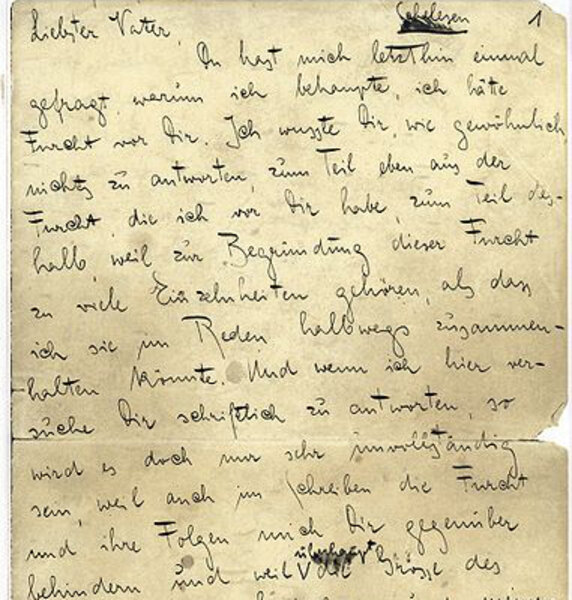 Schelesen 1
Liebster Vater,
Du hast mich letzthin einmal
gefragt, warum ich behaupte, ich hätte
Furcht vor Dir. Ich wusste Dir, wie gewöhnlich,
nichts zu antworten, zum Teil eben aus der
Furcht, die ich vor Dir habe, zum Teil des-
halb, weil zur Begründung dieser Furcht
zu viele Einzelnheiten gehören, als dass
ich sie im Reden halbwegs zusammen-
halten könnte. Und wenn ich hier ver-
suche Dir schriftlich zu antworten, so
wird es doch nur sehr unvollständig
sein, weil auch im Schreiben die Furcht
und ihre Folgen mich Dir gegenüber
überhaupt
behindern und weil V die Grösse des